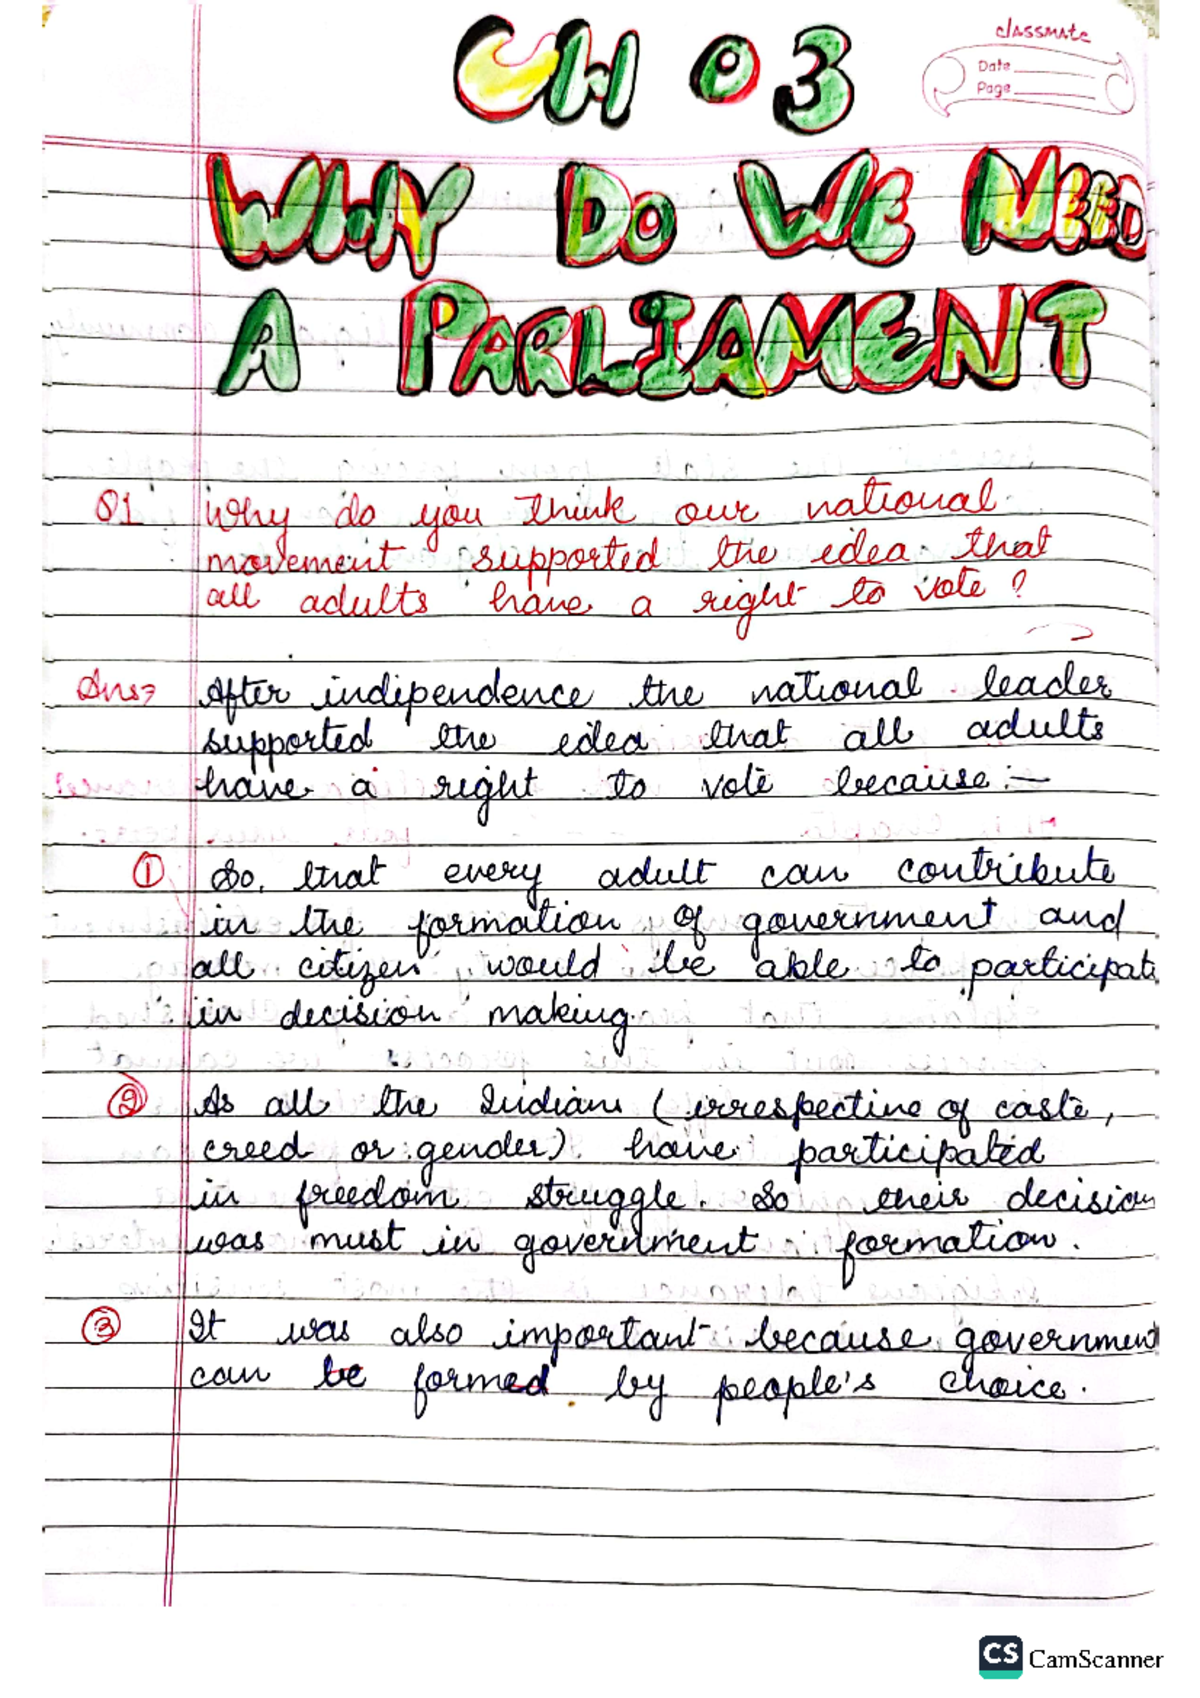 classmate
Date
Page
CH 03
WHY DO WE NEED
A PARLIAMENT
Q1 Why do you think our national
movement supported the idea that
all adults have a right to vote?
Ans→ After independence the national leader
supported the idea that all adults
have a right to vote because :-
① So, that every adult can contribute
in the formation of government and
all citizen would be able to participate
in decision making.
② As all the Indians (irrespective of caste,
creed or gender) have participated
in freedom struggle. So their decision
was must in government formation.
③ It was also important because government
can be formed by people's choice.
CS CamScanner